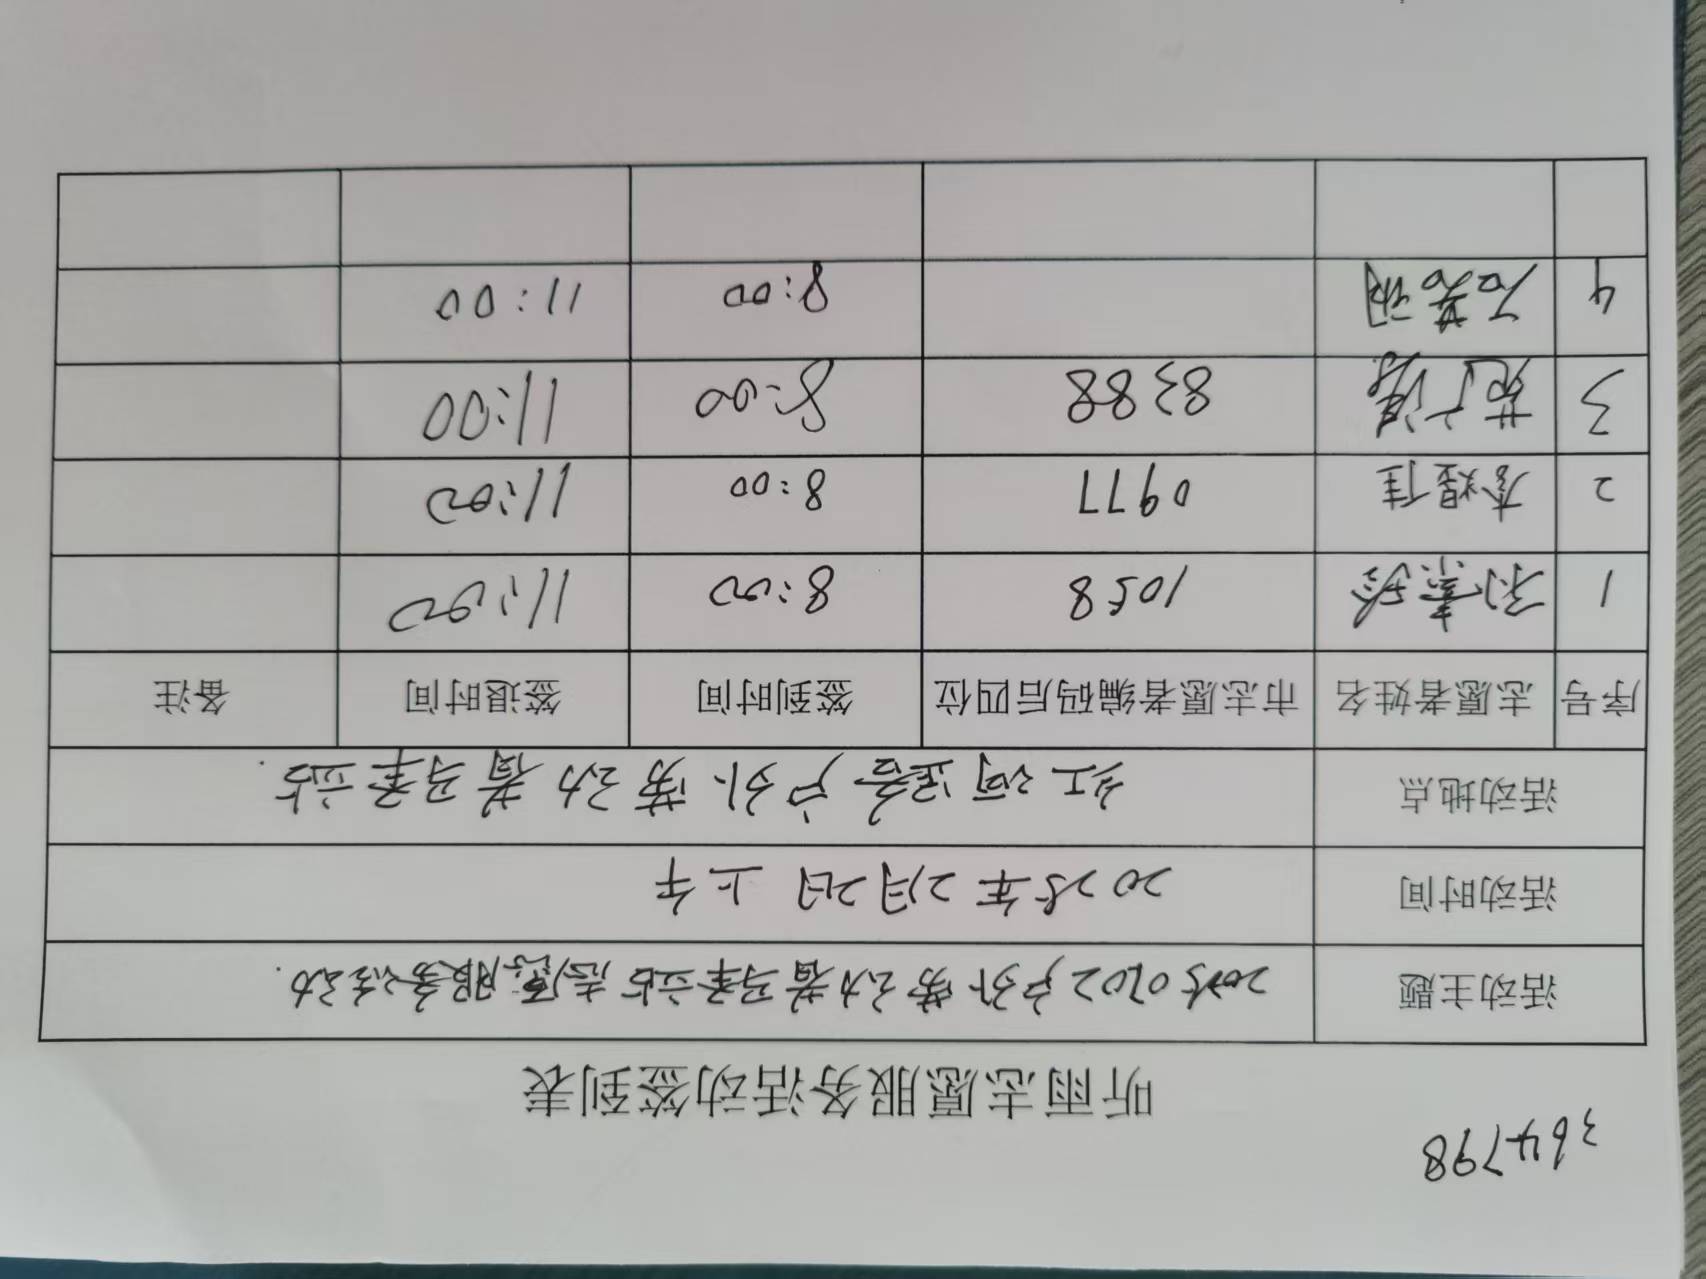 364798
听雨志愿服务活动签到表
活动主题 20250202户外劳动者马军站志愿服务活动.
活动时间 2025年2月2日 上午
活动地点 红河 户外劳动者马军站.
序号 志愿者姓名 市志愿者编码后四位 签到时间 签退时间 备注
1 1058 8:00 11:00
2 李煜佳 0977 8:00 11:00
3 8388 8:00 11:00
4 8:00 11:00